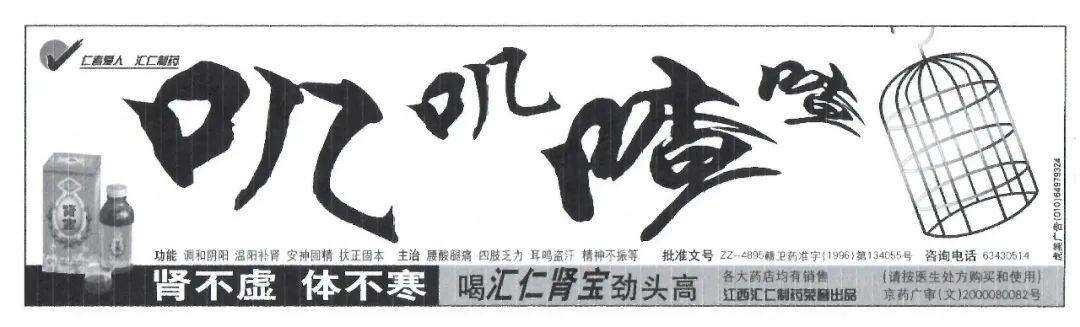 仁者爱人 汇仁制药
叽叽喳喳
肾宝
功能 调和阴阳 温阳补肾 安神固精 扶正固本 主治 腰酸腿痛 四肢乏力 耳鸣盗汗 精神不振等 批准文号 ZZ-4895赣卫药准字(1996)第134055号 咨询电话 63430514
肾不虚 体不寒
喝汇仁肾宝劲头高
各大药店均有销售 (请按医生处方购买和使用)
江西汇仁制药荣誉出品 京药广审(文)2000080082号
广告(010)64979324